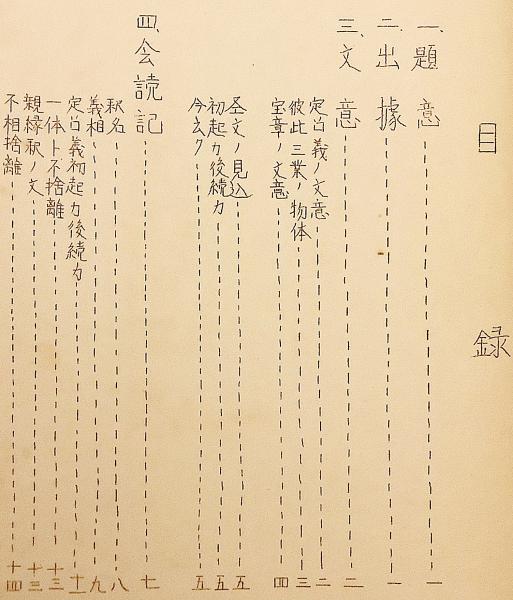 目録
一、題意 一
二、出據 一
三、文意 二
定占義ノ文意 二
彼此三業ノ物体 三
宝章ノ文意 四
圣文ノ見込 五
初起カ後続カ 五
今云ク 五
四、会読記 七
釈名 八
義相 九
定占義初起カ後続カ 十一
一体ト不捨離 十三
親縁釈ノ文 十三
不相捨離 十四